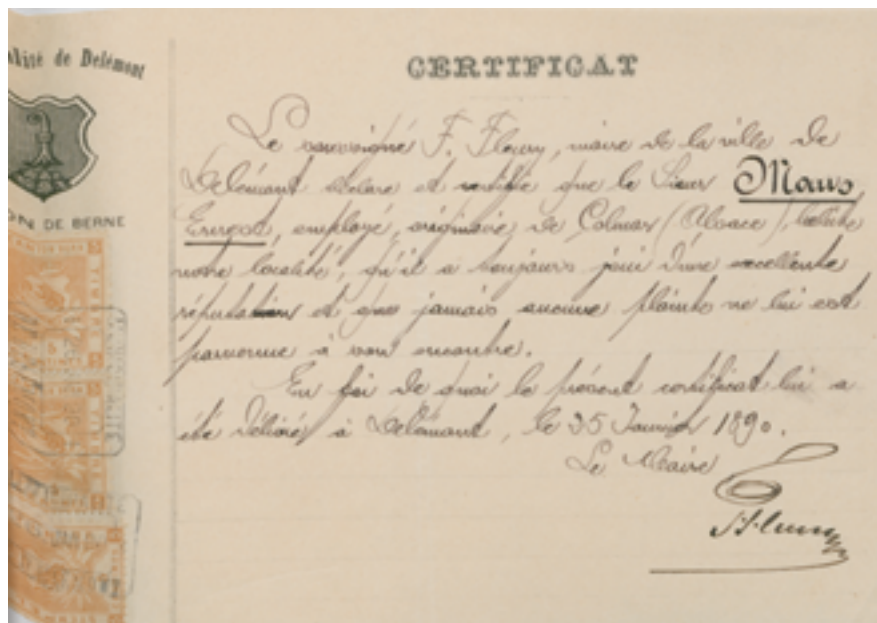 alité de Delémont
CERTIFICAT
Le soussigné F. Fleury, maire de la ville de
Delémont déclare et certifie que le Sieur Maus
employé, originaire de Colmar (Alsace), habite
notre localité, qu'il a toujours joui d'une excellente
réputation et que jamais aucune plainte ne lui est
parvenue à son encontre.
En foi de quoi le présent certificat lui a
été délivré à Delémont, le Janvier 1890.
Le Maire
F. Fleury
ON DE BERNE